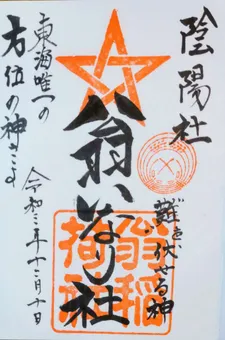 陰陽社
難を伏せる神
八翁いなり社
東海唯一の
方位の神さま
令和三年十二月十日